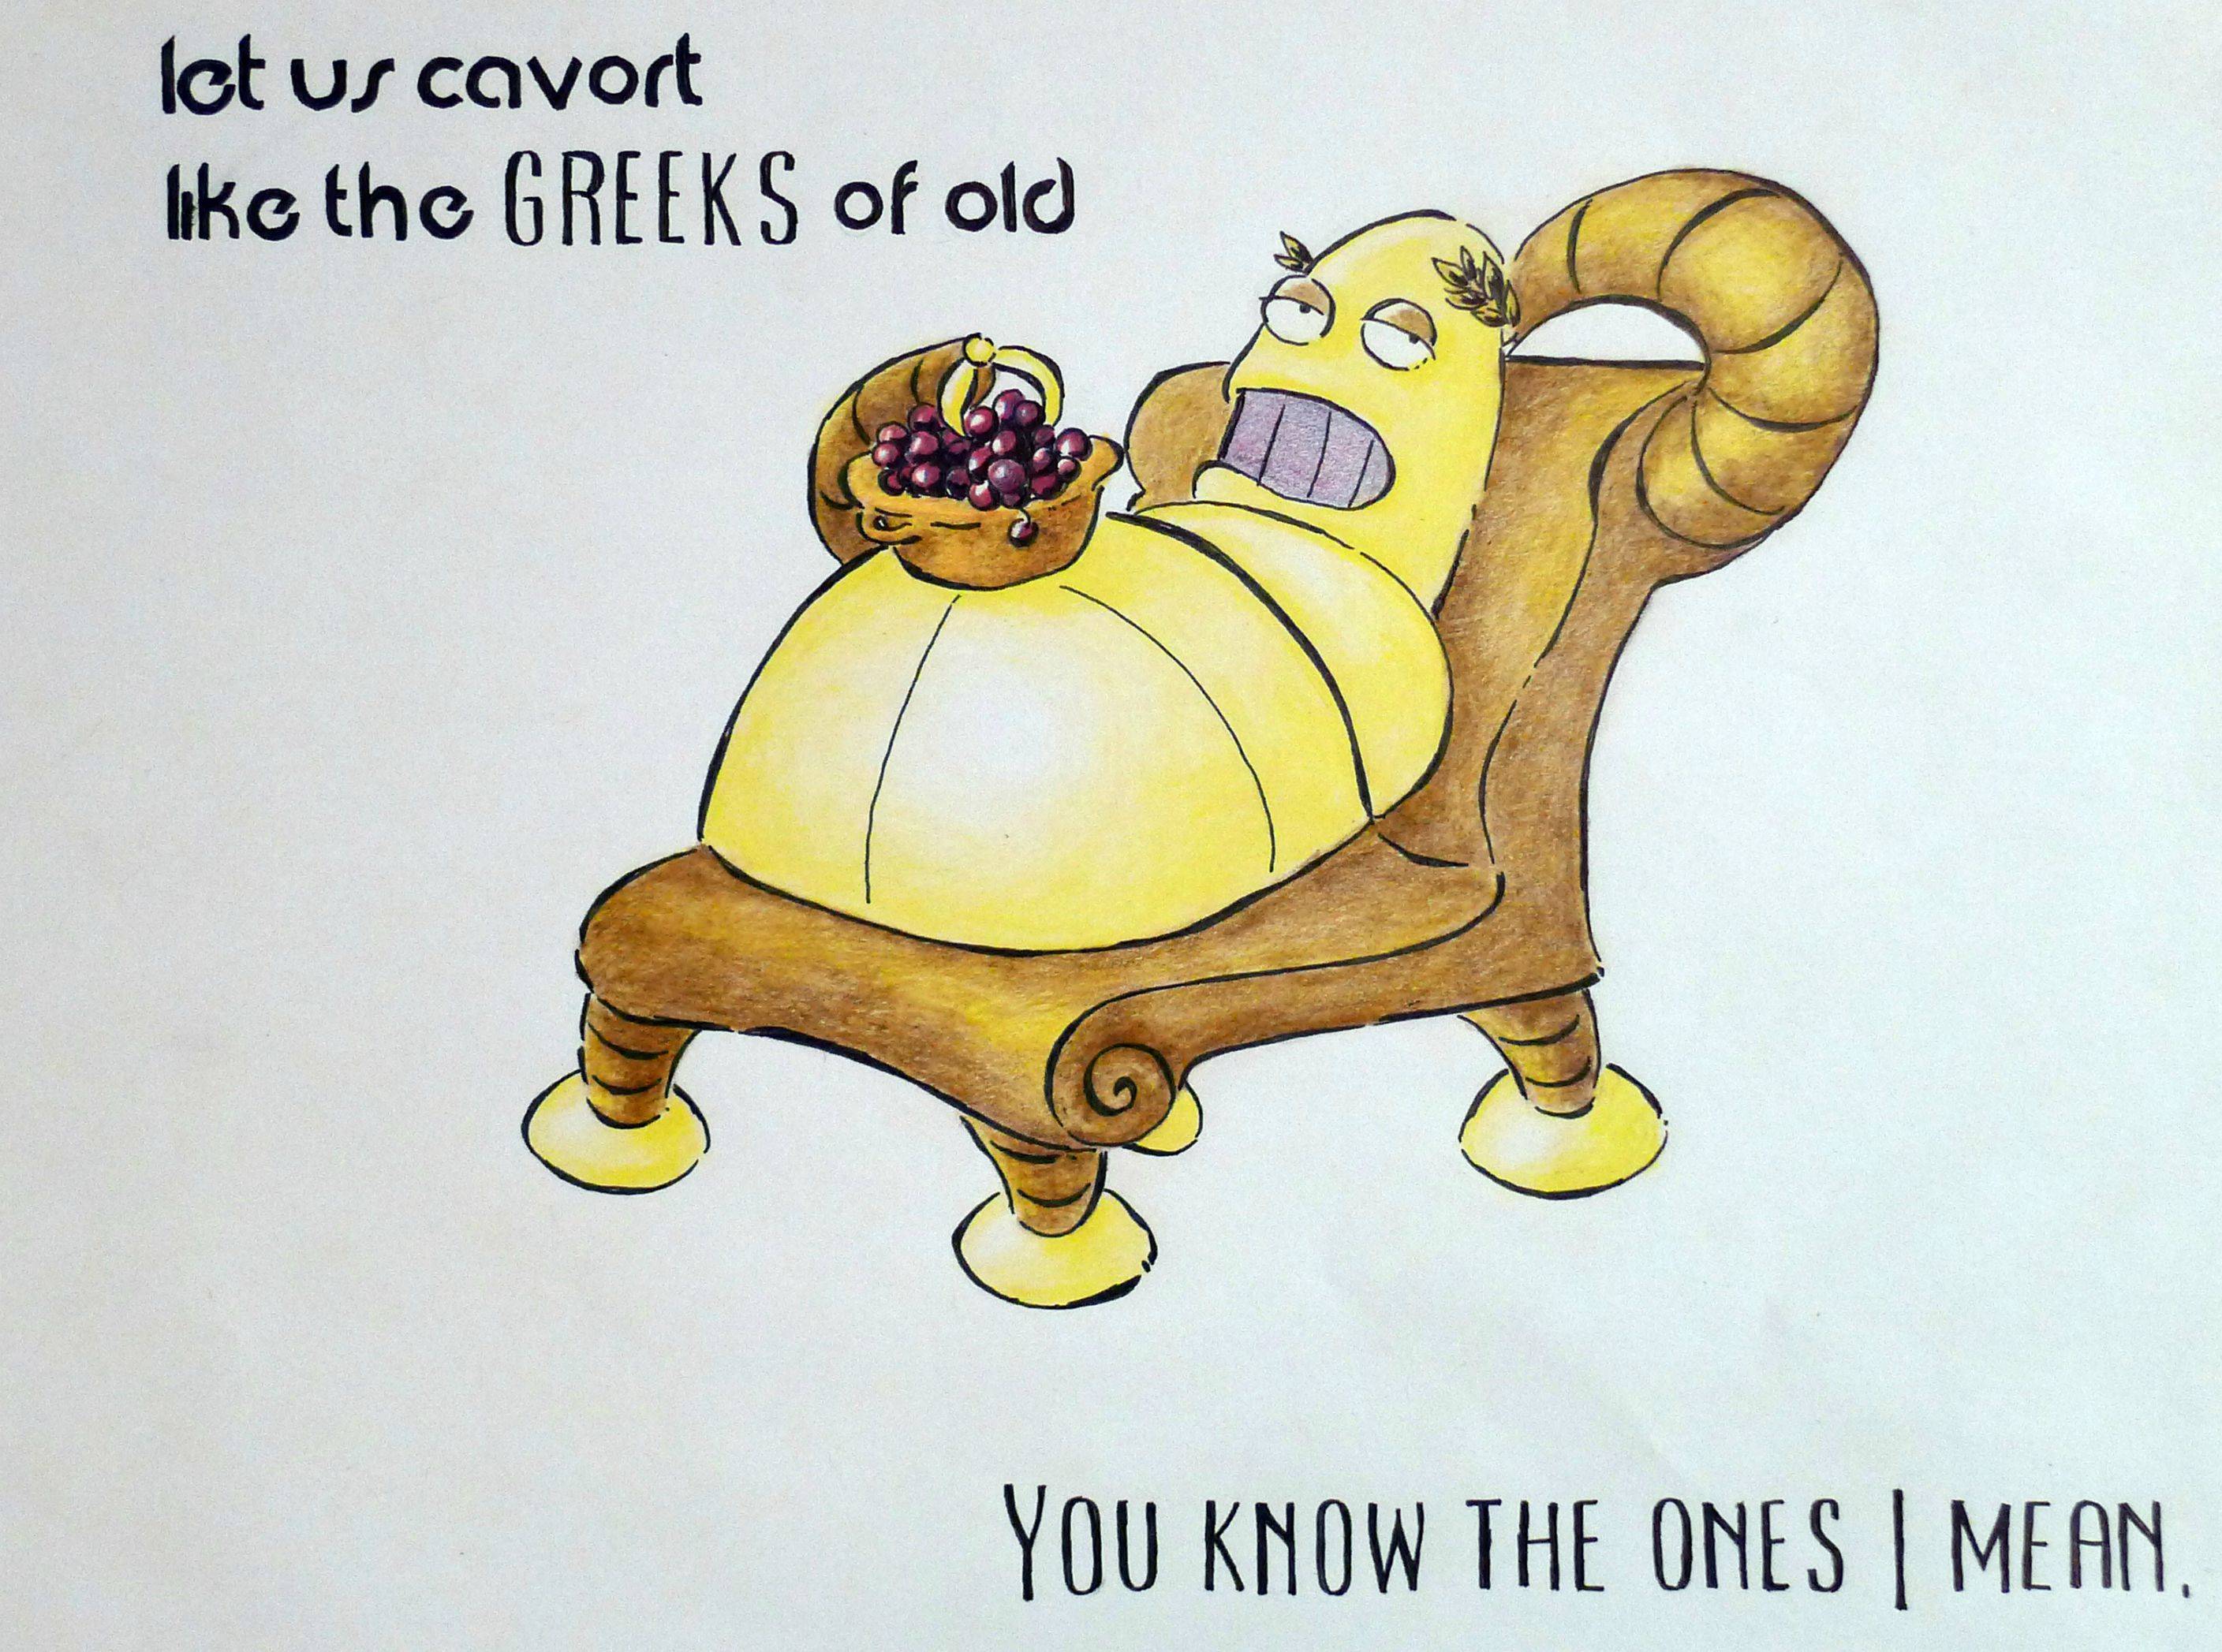 let us cavort
like the GREEKS of old
YOU KNOW THE ONES I MEAN.